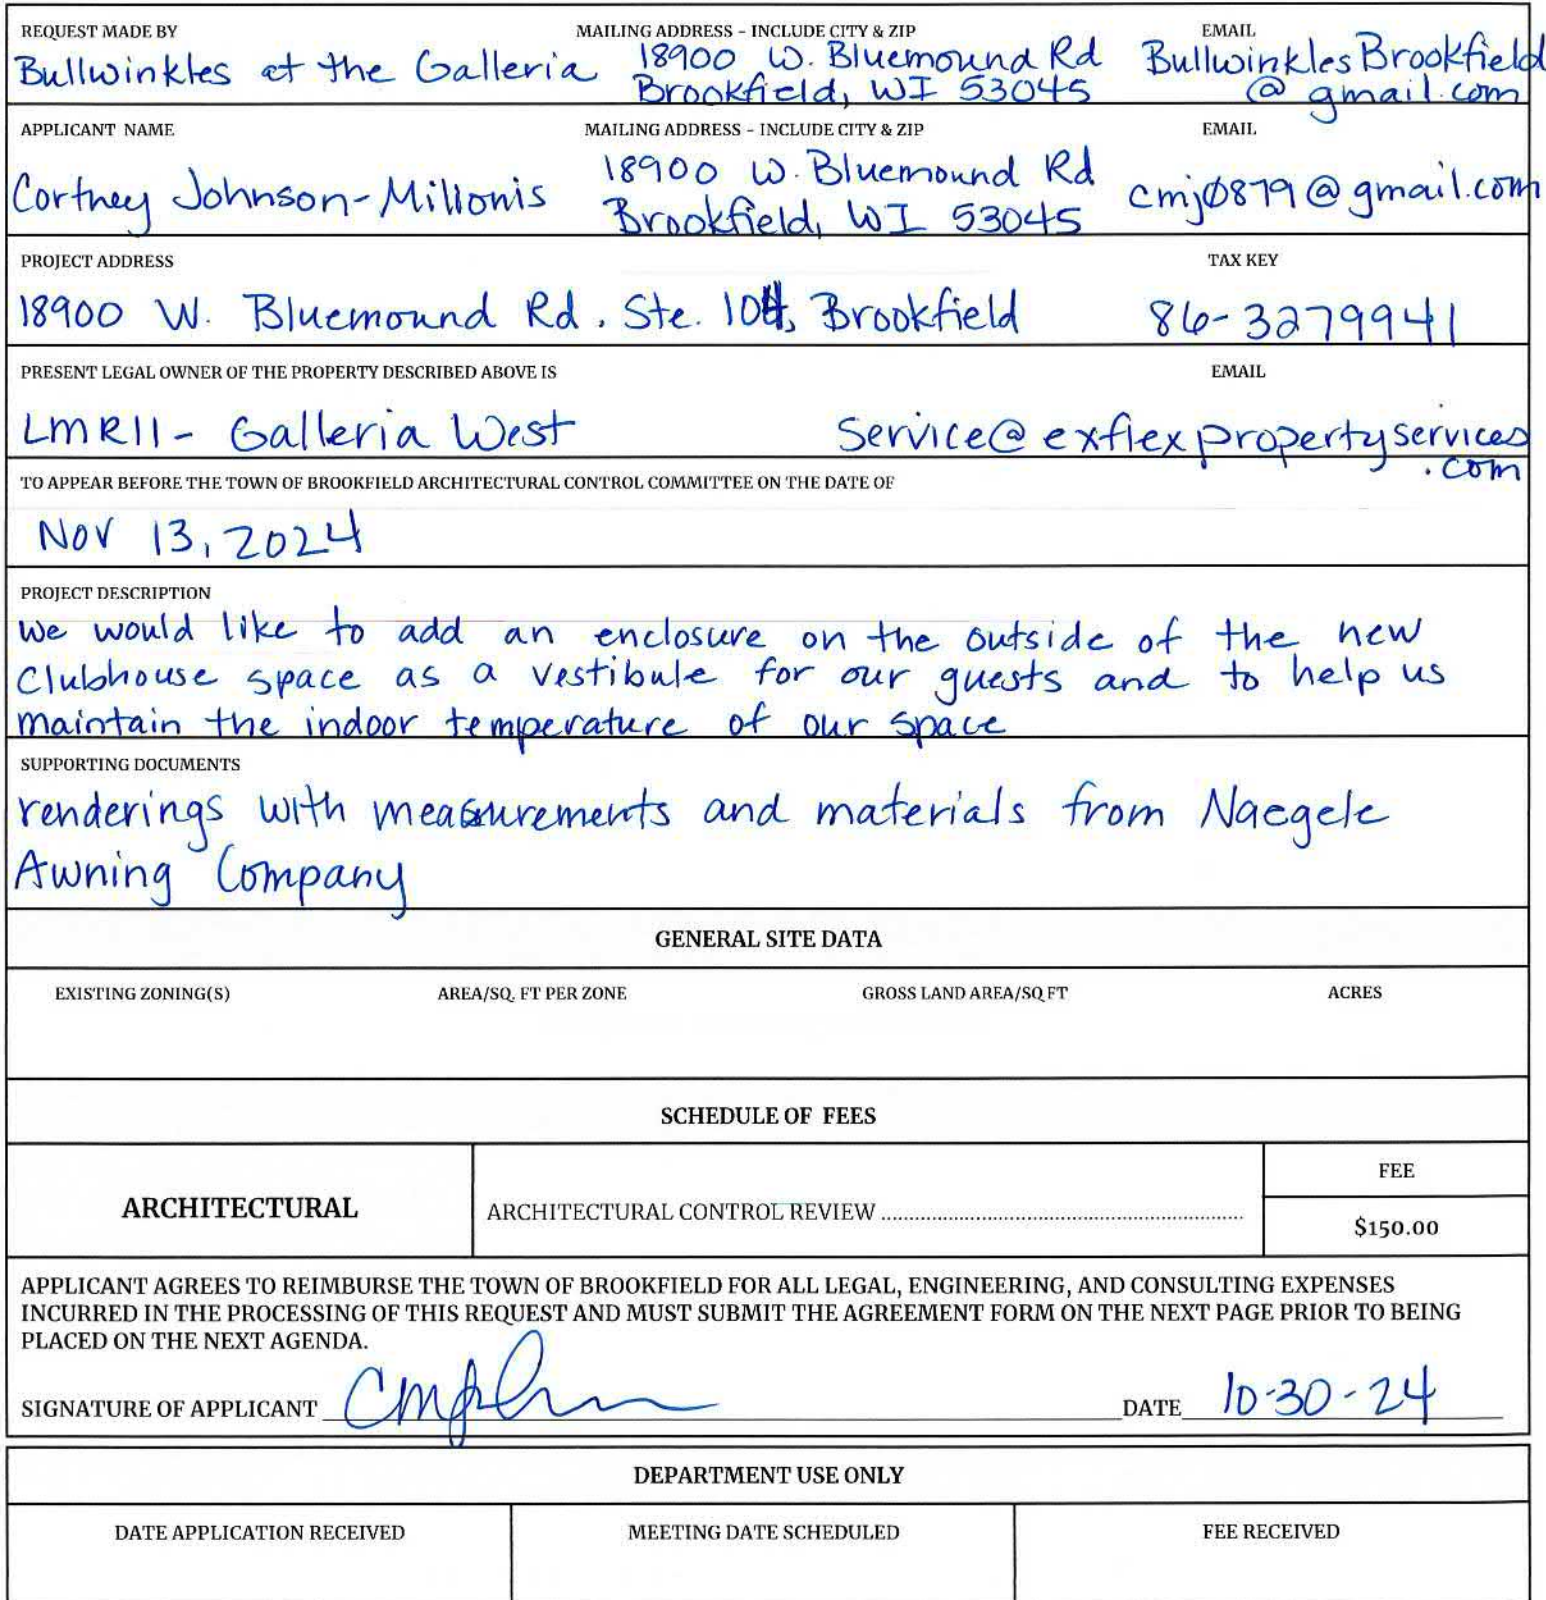 REQUEST MADE BY MAILING ADDRESS - INCLUDE CITY & ZIP EMAIL
Bullwinkles at the Galleria 18900 W. Bluemound Rd BullwinklesBrookfield
Brookfield, WI 53045 @gmail.com
APPLICANT NAME MAILING ADDRESS - INCLUDE CITY & ZIP EMAIL
Cortney Johnson-Millonis 18900 W. Bluemound Rd cmj0879@gmail.com
Brookfield, WI 53045
PROJECT ADDRESS TAX KEY
18900 W. Bluemound Rd. Ste. 104, Brookfield 86-3279941
PRESENT LEGAL OWNER OF THE PROPERTY DESCRIBED ABOVE IS EMAIL
LMRII- Galleria West Service@exflexpropertyservices
.com
TO APPEAR BEFORE THE TOWN OF BROOKFIELD ARCHITECTURAL CONTROL COMMITTEE ON THE DATE OF
Nov 13, 2024
PROJECT DESCRIPTION
We would like to add an enclosure on the outside of the new
Clubhouse space as a vestibule for our guests and to help us
maintain the indoor temperature of our space
SUPPORTING DOCUMENTS
renderings with measurements and materials from Naegele
Awning Company
GENERAL SITE DATA
EXISTING ZONING(S) AREA/SQ. FT PER ZONE GROSS LAND AREA/SQ FT ACRES
SCHEDULE OF FEES
ARCHITECTURAL ARCHITECTURAL CONTROL REVIEW ........................................ FEE
$150.00
APPLICANT AGREES TO REIMBURSE THE TOWN OF BROOKFIELD FOR ALL LEGAL, ENGINEERING, AND CONSULTING EXPENSES
INCURRED IN THE PROCESSING OF THIS REQUEST AND MUST SUBMIT THE AGREEMENT FORM ON THE NEXT PAGE PRIOR TO BEING
PLACED ON THE NEXT AGENDA.
SIGNATURE OF APPLICANT DATE 10-30-24
DEPARTMENT USE ONLY
DATE APPLICATION RECEIVED MEETING DATE SCHEDULED FEE RECEIVED